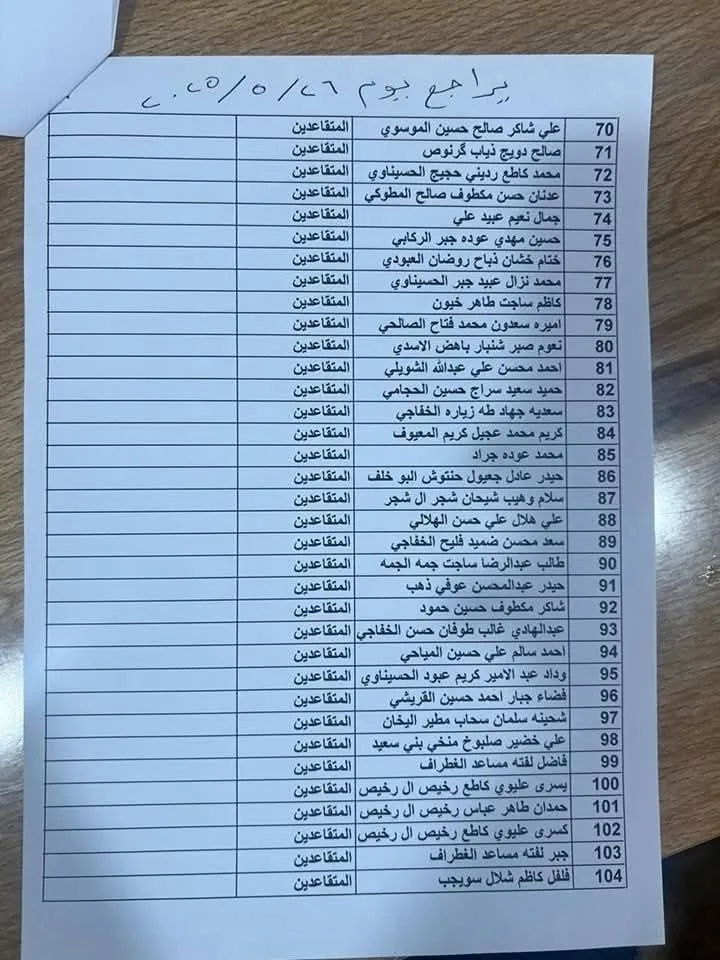 يراجع يوم ٢٦ / ٥ / ٢٠٢٥
70 علي شاكر صالح حسين الموسوي المتقاعدين
71 صالح دويج ذياب گرنوص المتقاعدين
72 محمد كاطع رديني حجيج الحسيناوي المتقاعدين
73 عدنان حسن مكطوف صالح المطوكي المتقاعدين
74 جمال نعيم عبيد علي المتقاعدين
75 حسين مهدي عوده جبر الركابي المتقاعدين
76 ختام خشان ذباح روضان العبودي المتقاعدين
77 محمد نزال عبيد جبر الحسيناوي المتقاعدين
78 كاظم ساجت طاهر خيون المتقاعدين
79 اميره سعدون محمد فتاح الصالحي المتقاعدين
80 نعوم صبر شنبار باهض الاسدي المتقاعدين
81 احمد محسن علي عبدالله الشويلي المتقاعدين
82 حميد سعيد سراج حسين الحجامي المتقاعدين
83 سعديه جهاد طه زياره الخفاجي المتقاعدين
84 كريم محمد عجيل كريم المعيوف المتقاعدين
85 محمد عوده جراد المتقاعدين
86 حيدر عادل جعيول حنتوش البو خلف المتقاعدين
87 سلام وهيب شيحان شجر ال شجر المتقاعدين
88 علي هلال علي حسن الهلالي المتقاعدين
89 سعد محسن ضميد فليح الخفاجي المتقاعدين
90 طالب عبدالرضا ساجت جمه الجمه المتقاعدين
91 حيدر عبدالمحسن عوفي ذهب المتقاعدين
92 شاكر مكطوف حسين حمود المتقاعدين
93 عبدالهادي غالب طوفان حسن الخفاجي المتقاعدين
94 احمد سالم علي حسين المياحي المتقاعدين
95 وداد عبد الامير كريم عبود الحسيناوي المتقاعدين
96 فضاء جبار احمد حسين القريشي المتقاعدين
97 شحينه سلمان سحاب مطير اليخان المتقاعدين
98 علي خضير صلبوخ منخي بني سعيد المتقاعدين
99 فاضل لفته مساعد الغطراف المتقاعدين
100 يسرى عليوي كاطع رخيص ال رخيص المتقاعدين
101 حمدان طاهر عباس رخيص ال رخيص المتقاعدين
102 كسرى عليوي كاطع رخيص ال رخيص المتقاعدين
103 جبر لفته مساعد الغطراف المتقاعدين
104 فلفل كاظم شلال سويجب المتقاعدين